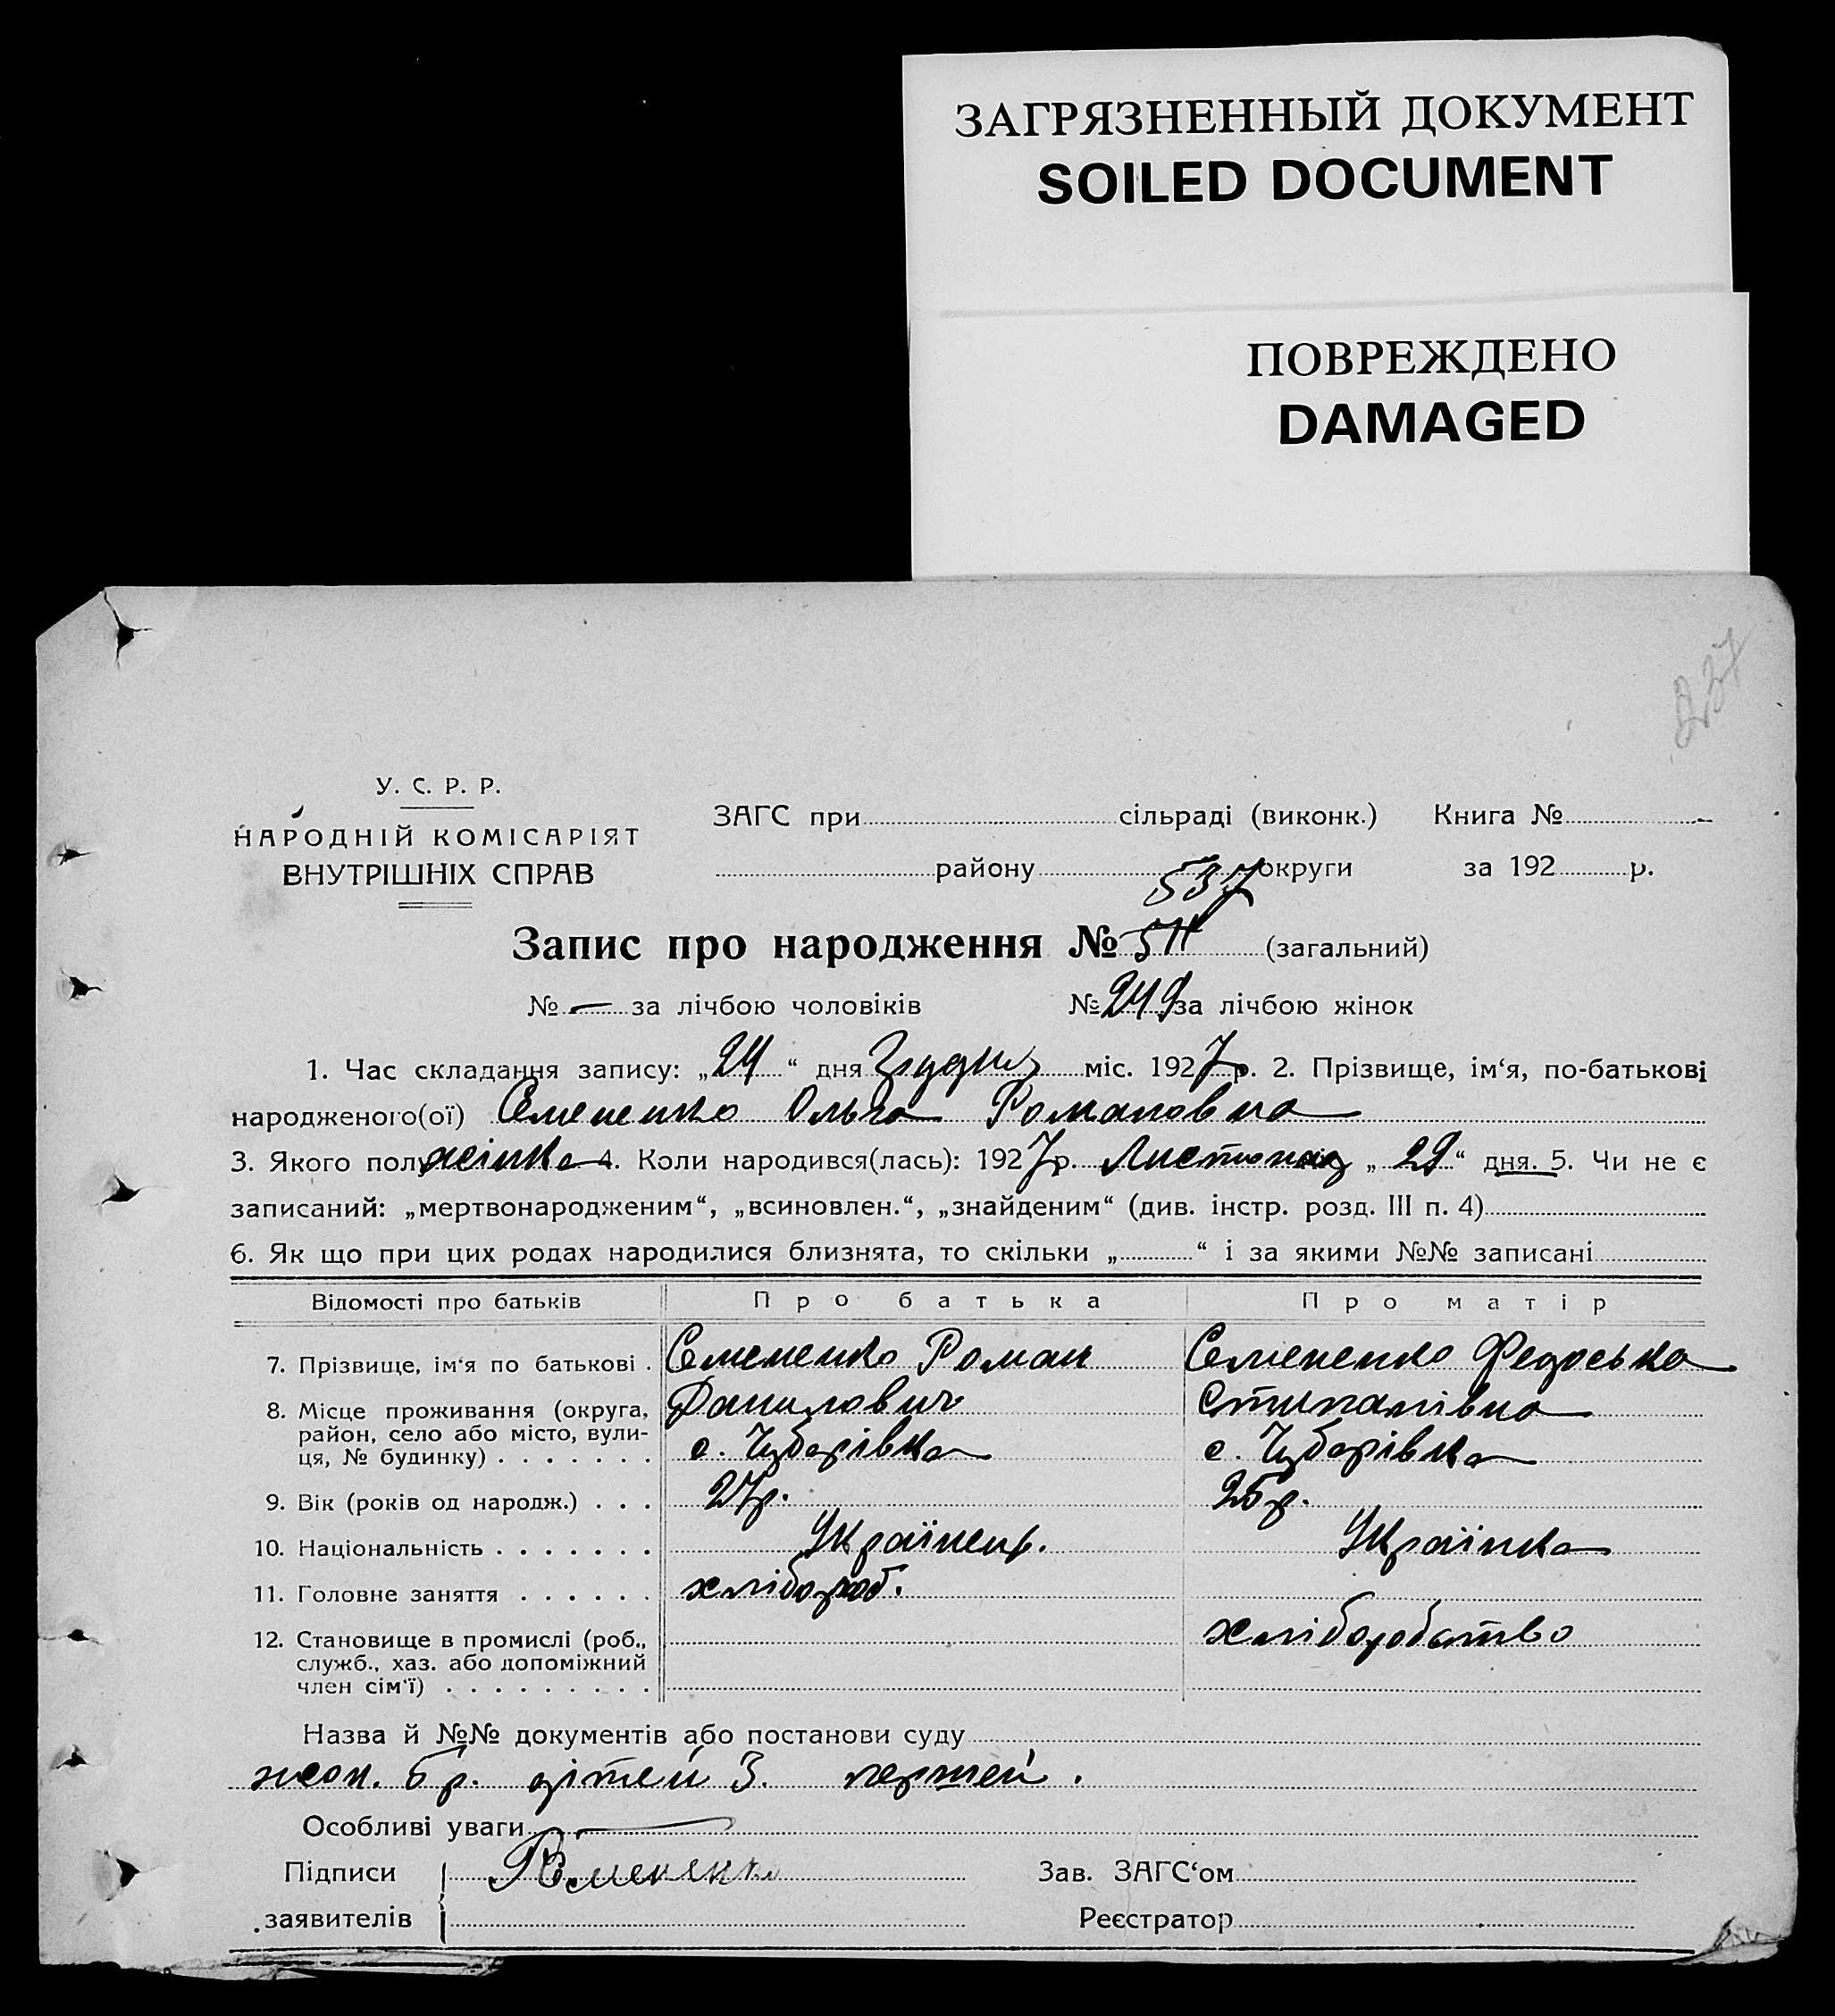 ЗАГРЯЗНЕННЫЙ ДОКУМЕНТ
SOILED DOCUMENT
ПОВРЕЖДЕНО
DAMAGED
237
У. С. Р. Р.
НАРОДНІЙ КОМІСАРІЯТ
ВНУТРІШНІХ СПРАВ
ЗАГС при сільраді (виконк.) Книга №
району округи за 192 р.
537
Запис про народження № 511 (загальний)
№ — за лічбою чоловіків № 249 за лічбою жінок
1. Час складання запису: „24“ дня Грудня міс. 1927 р. 2. Прізвище, ім‘я, по-батькові
народженого(ої) Семененко Ольга Романовна
3. Якого полу жінка 4. Коли народився(лась): 1927 р. Листопад „29“ дня. 5. Чи не є
записаний: „мертвонародженим“, „всиновлен.“, „знайденим“ (див. інстр. розд. III п. 4)
6. Як що при цих родах народилися близнята, то скільки „ “ і за якими №№ записані
Відомості про батьків Про батька Про матір
7. Прізвище, ім‘я по батькові . Семененко Роман Семененко Федоська
8. Місце проживання (округа, Данилович Стипанівна
район, село або місто, вули-
ця, № будинку) . . . . . . . с. Чубарівка с. Чубарівка
9. Вік (років од народж.) . . . 27р. 25р.
10. Національність . . . . . . . Українець. Українка
11. Головне заняття . . . . . . хлібороб.
12. Становище в промислі (роб., хліборобство
служб., хаз. або допоміжний
член сім‘ї) . . . . . . . . .
Назва й №№ документів або постанови суду
жон. 5 р. дітей 3. першей.
Особливі уваги
Підписи РСемененко Зав. ЗАГС‘ом
заявителів Реєстратор